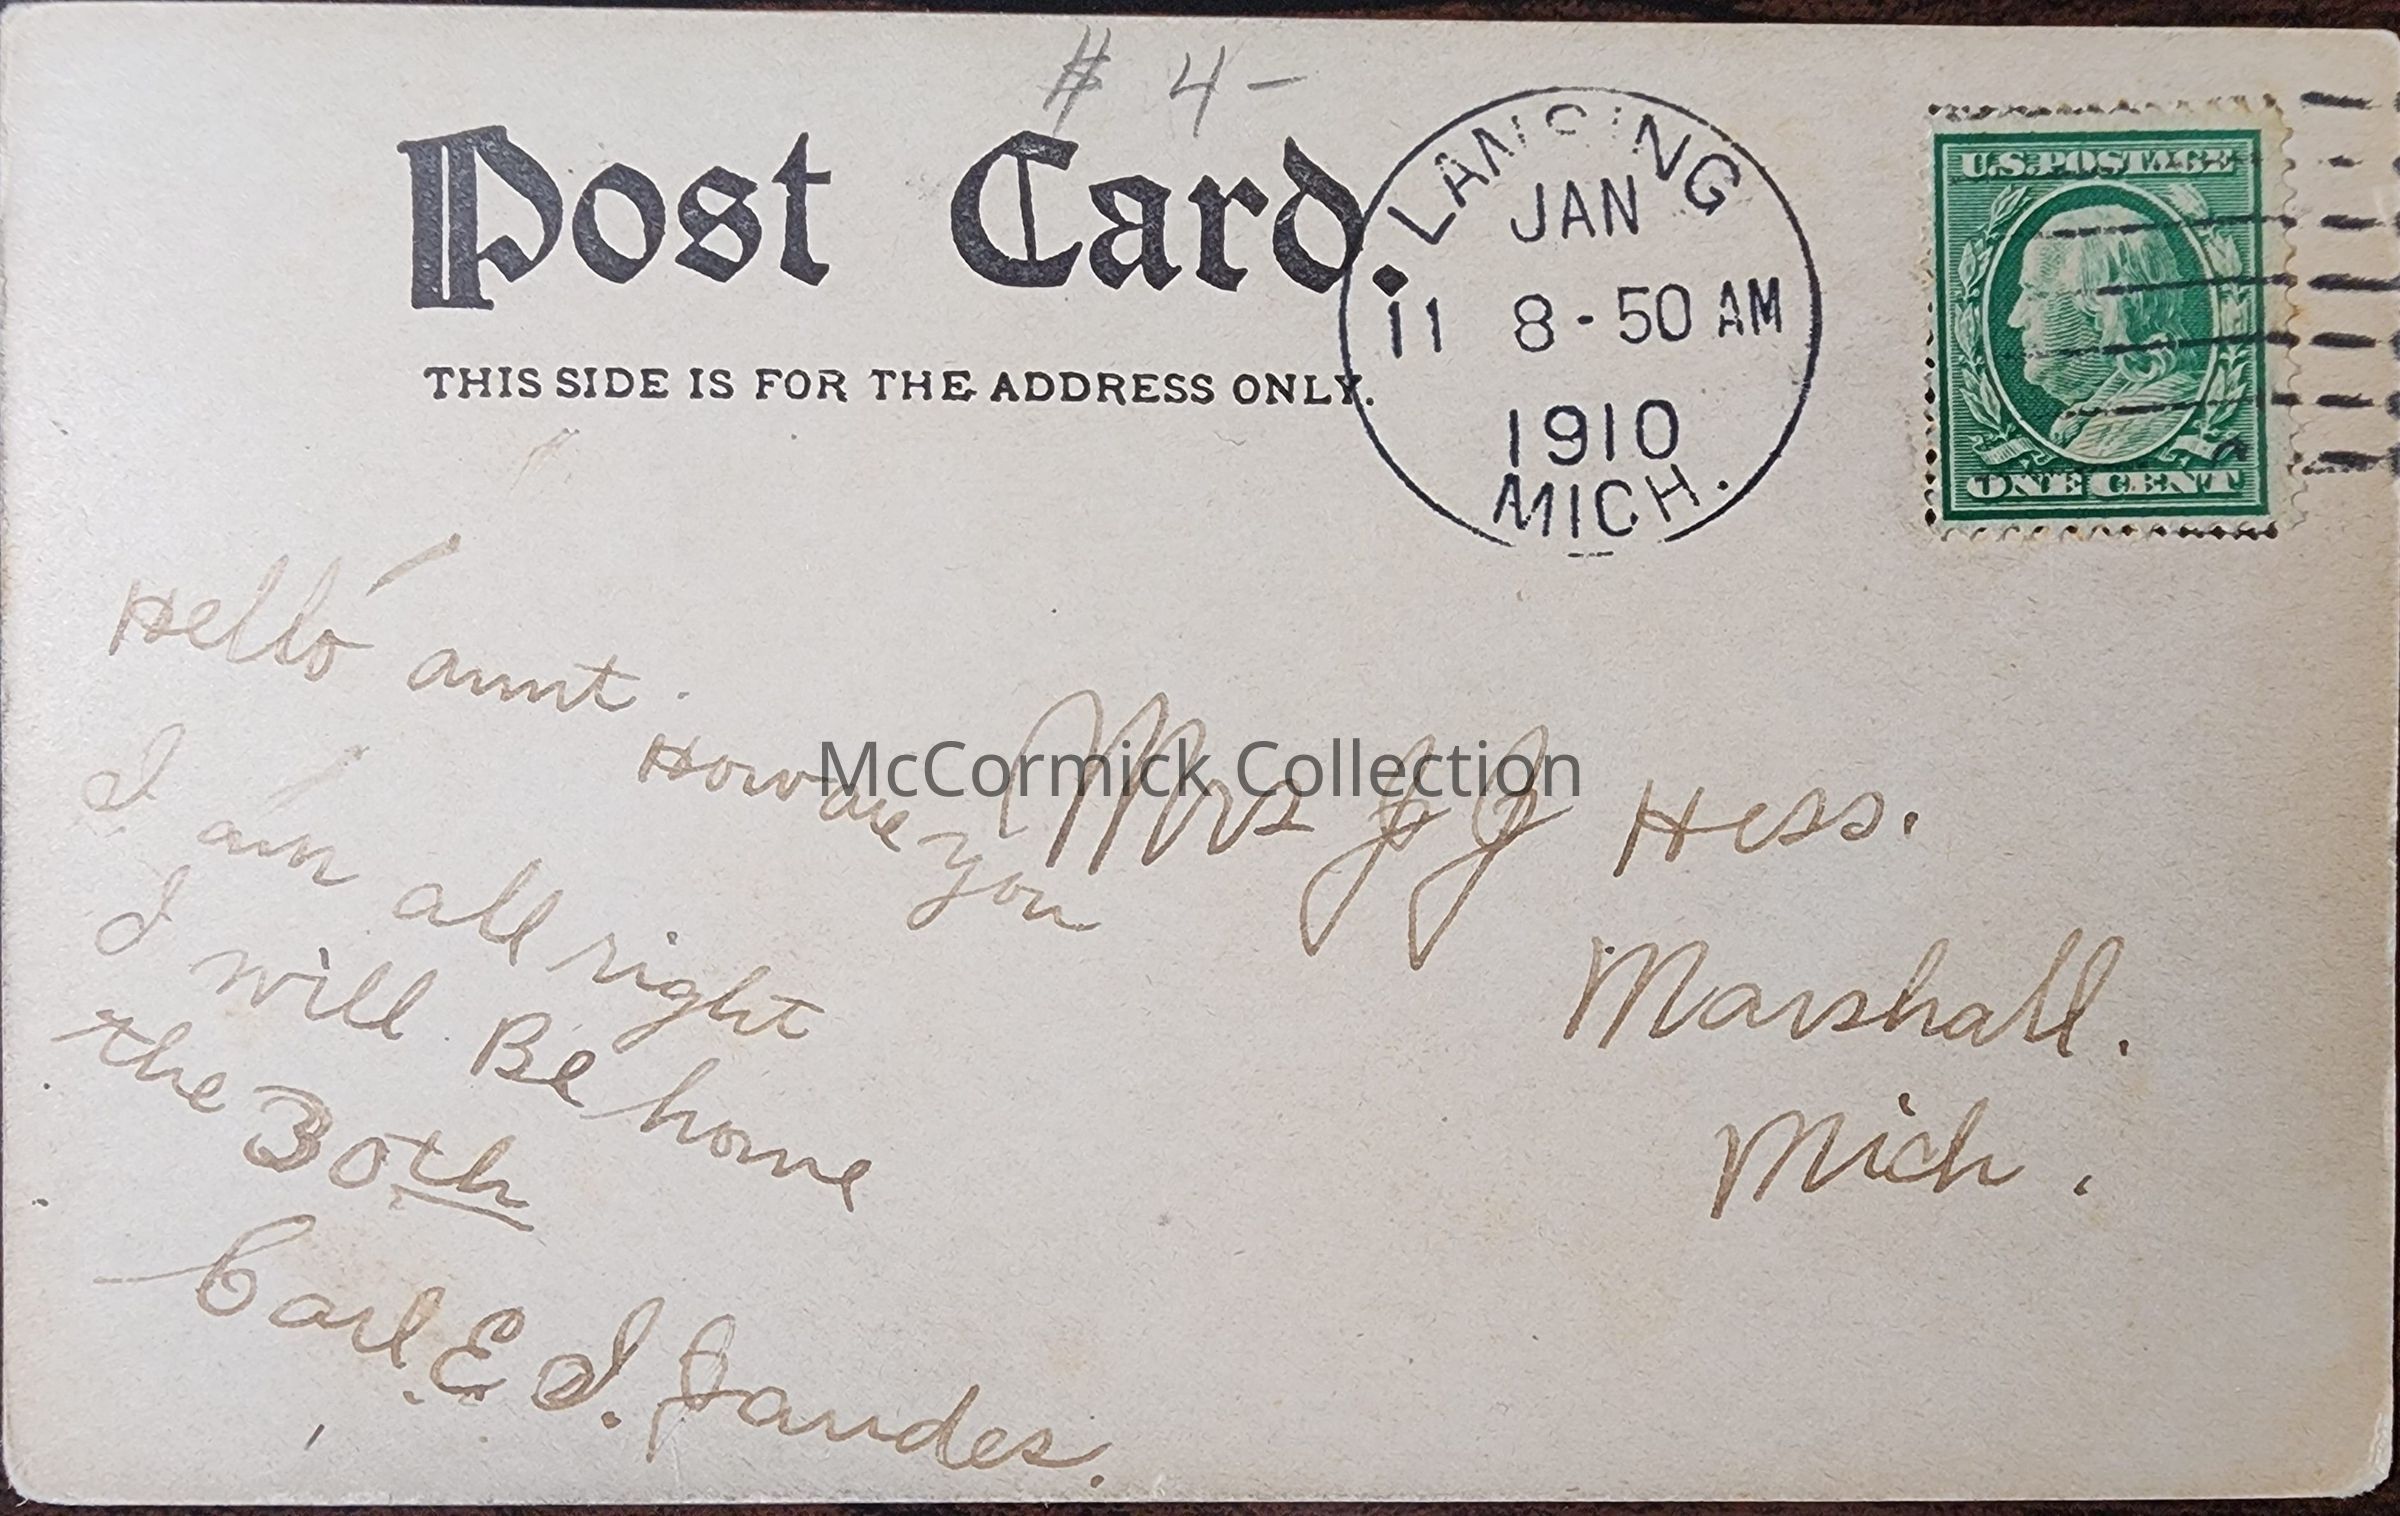 # 4-
Post Card.
THIS SIDE IS FOR THE ADDRESS ONLY.
LANSING
JAN
11 8-50 AM
1910
MICH.
U.S. POSTAGE
ONE CENT
Hello aunt.
How are you
I am all right
I will Be home
the 30th
Carl E.
McCormick Collection
Mrs J J Hess.
Marshall.
Mich.